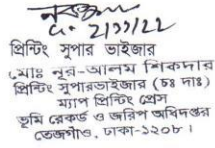 ২/১১/২২
প্রিন্টিং সুপার ভাইজার
মোঃ নূর-আলম শিকদার
প্রিন্টিং সুপারভাইজার (চঃ দাঃ)
ম্যাপ প্রিন্টিং প্রেস
ভূমি রেকর্ড ও জরিপ অধিদপ্তর
তেজগাঁও, ঢাকা-১২০৮।